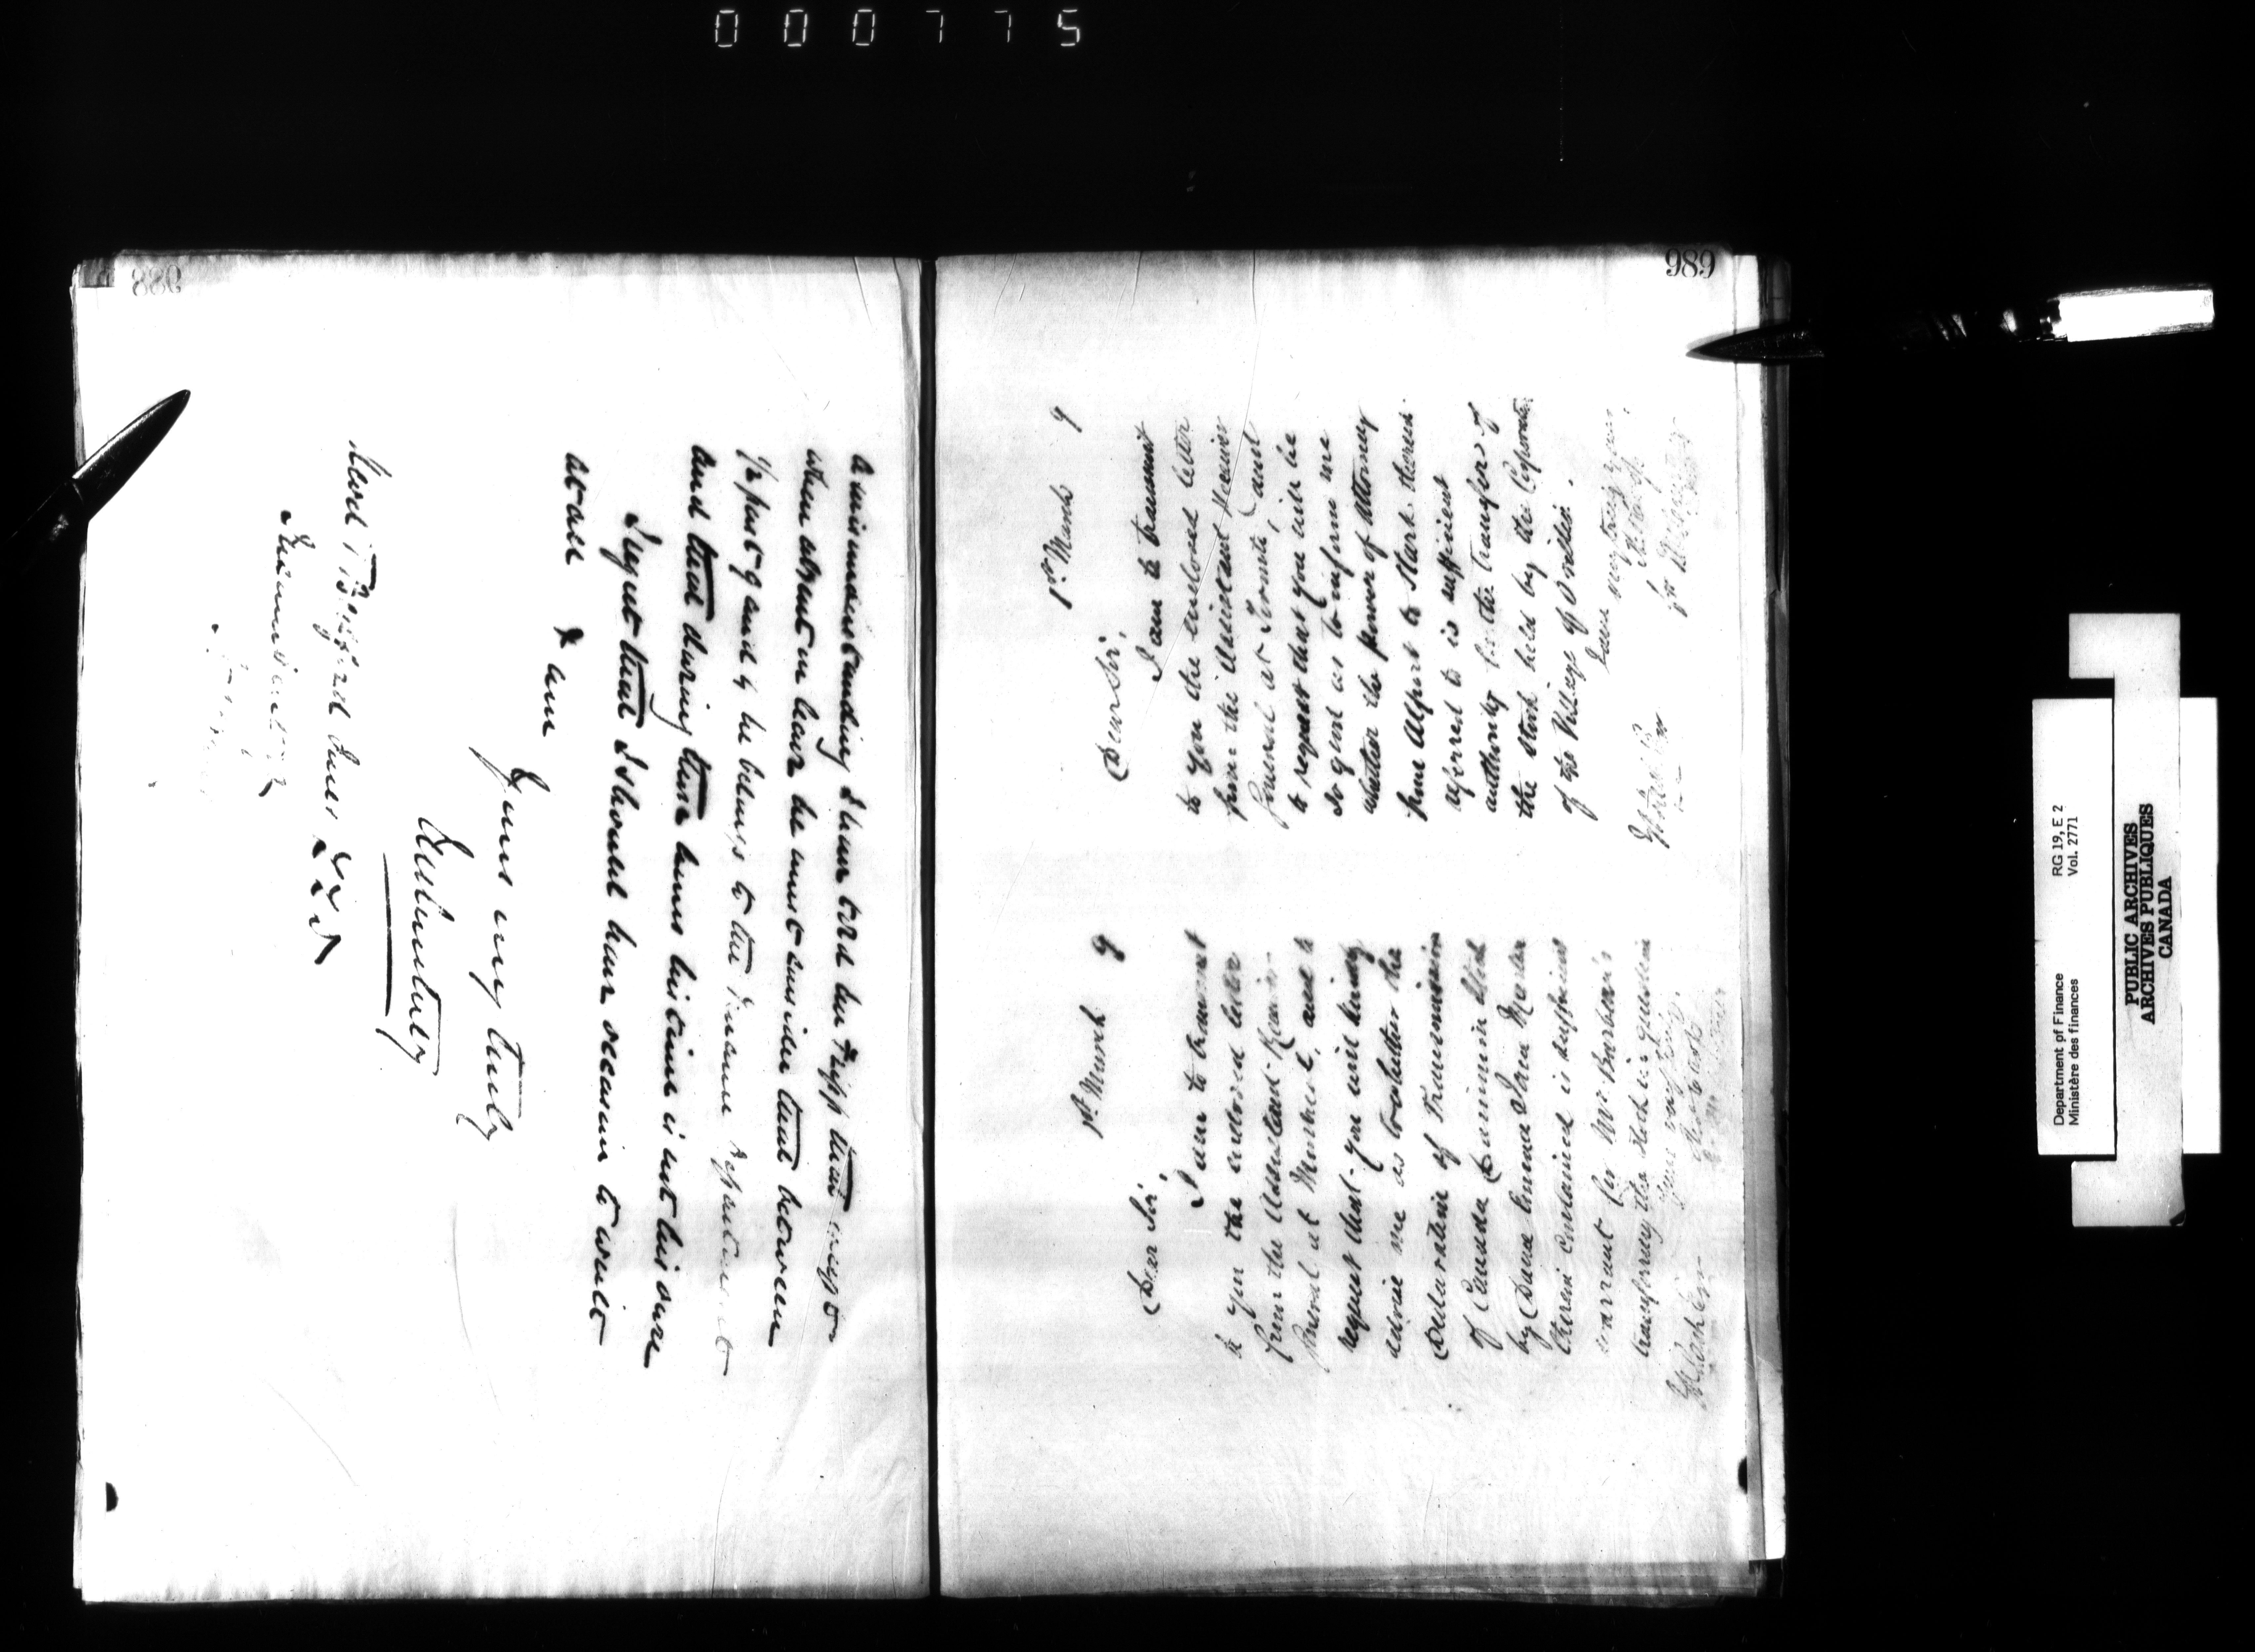 000775
988
a misunderstanding I have told Mr Tripp that except
when absent on leave he must consider that between
½ past 9 and 4 he belongs to the Finance Department
and that during those hours his time is not his own
I regret that I should have occasion to write
at all
I am
Yours very truly
989
1st March 9
Dear Sir,
I am to transmit
to you the enclosed letter
from the Assistant Receiver
General at Toronto, and
to request that you will be
so good as to inform me
whether the power of Attorney
from Alport to Stark therein
referred to is sufficient
authority for the transfer of
the stock held by the Corporation
of the Village of Orillia.
I am
1st March 9
Dear Sir,
I am to transmit
to you the enclosed letter
from the Assistant Receiver
General at Montreal, and to
request that you will kindly
advise me as to whether the
Declaration of Transmission
of Canada Dominion Stock
by Dame Emma
therein contained is sufficient
warrant for Mr Barbeau's
transferring the stock in question
Department of Finance RG 19, E 2
Ministère des finances Vol. 2771
PUBLIC ARCHIVES
ARCHIVES PUBLIQUES
CANADA